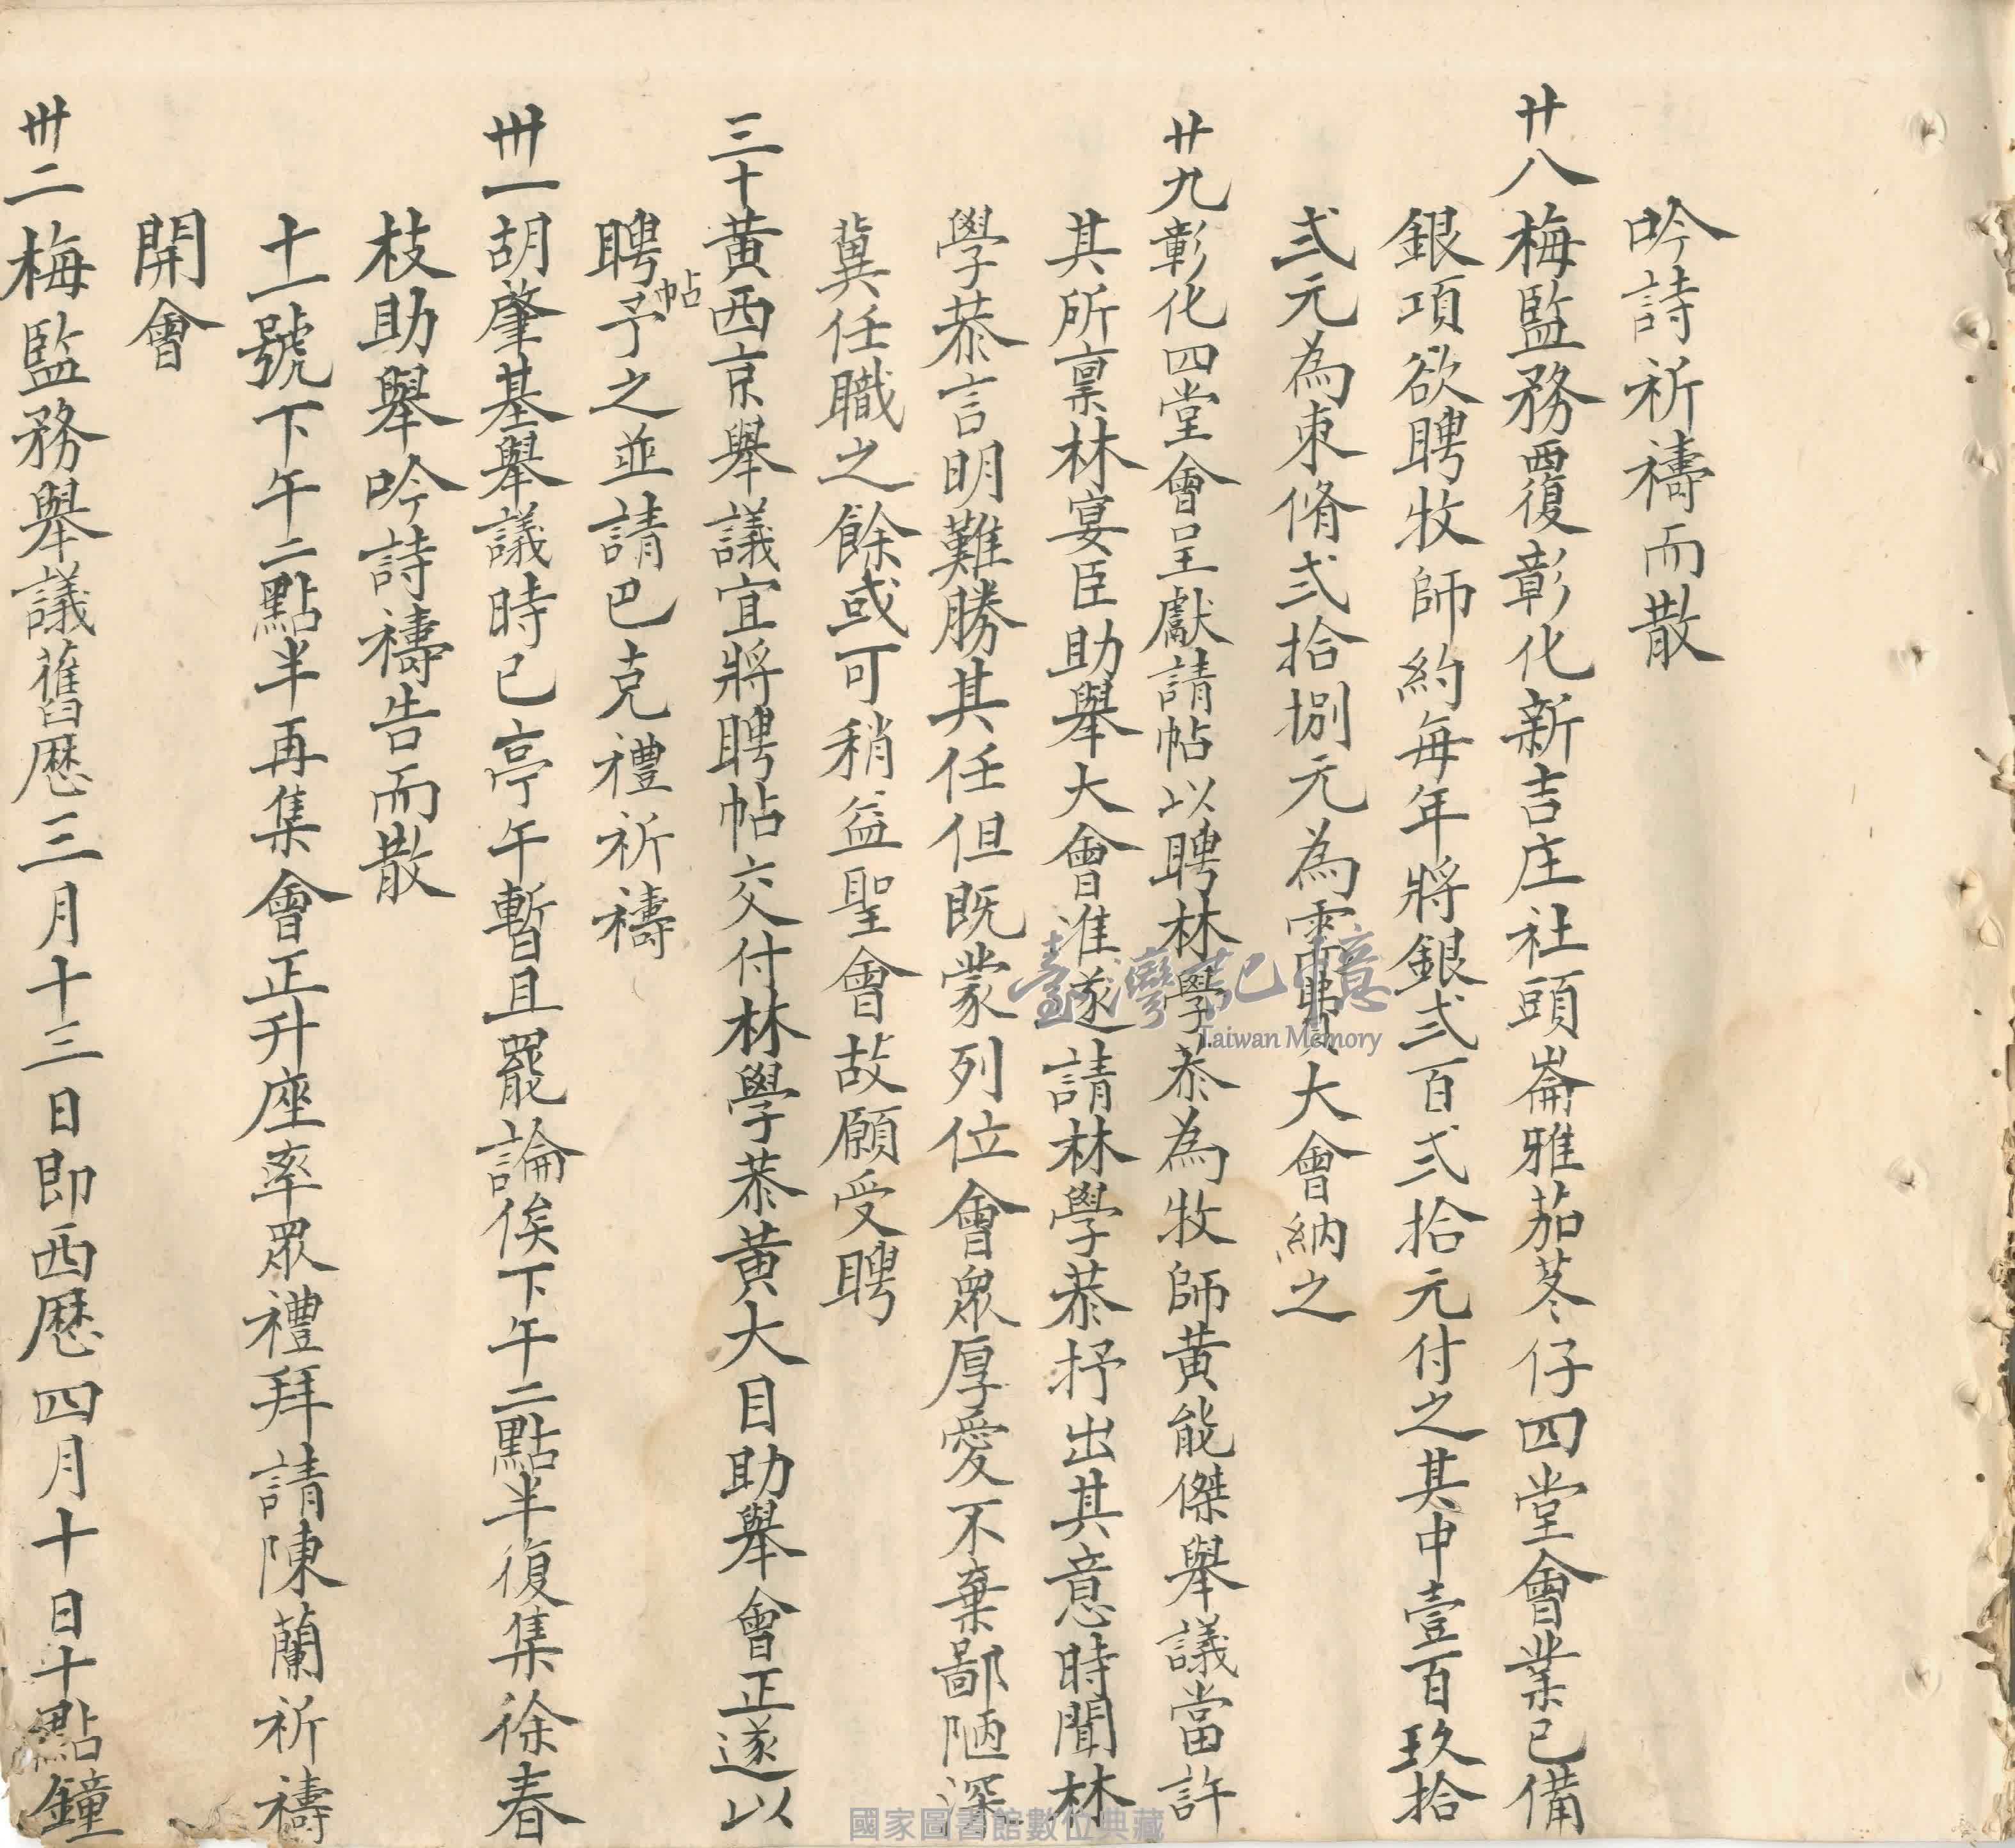 吟詩祈禱而散
廿八梅監務覆彰化新吉庄社頭崙雅茄苳仔四堂會業已備
銀項欲聘牧師約每年將銀弍百弍拾元付之其中壹百玖拾
弍元為束脩弍拾捌元為需費大會納之
廿九彰化四堂會呈獻請帖以聘林學恭為牧師黄能傑舉議當許
其所稟林宴臣助舉大會准遂請林學恭抒出其意時聞林
學恭言明難勝其任但既蒙列位會眾厚愛不棄鄙陋深
冀任職之餘或可稍益聖會故願受聘
三十黄西京舉議宜將聘帖交付林學恭黄大目助舉會正遂以
聘帖予之並請巴克禮祈禱
卅一胡肇基舉議時已亭午暫且罷論俟下午二點半復集徐春
枝助舉吟詩禱告而散
十一號下午二點半再集會正升座率眾禮拜請陳蘭祈禱
開會
卅二梅監務舉議舊曆三月十三日即西曆四月十日十點鐘
臺灣記憶
Taiwan Memory
國家圖書館數位典藏